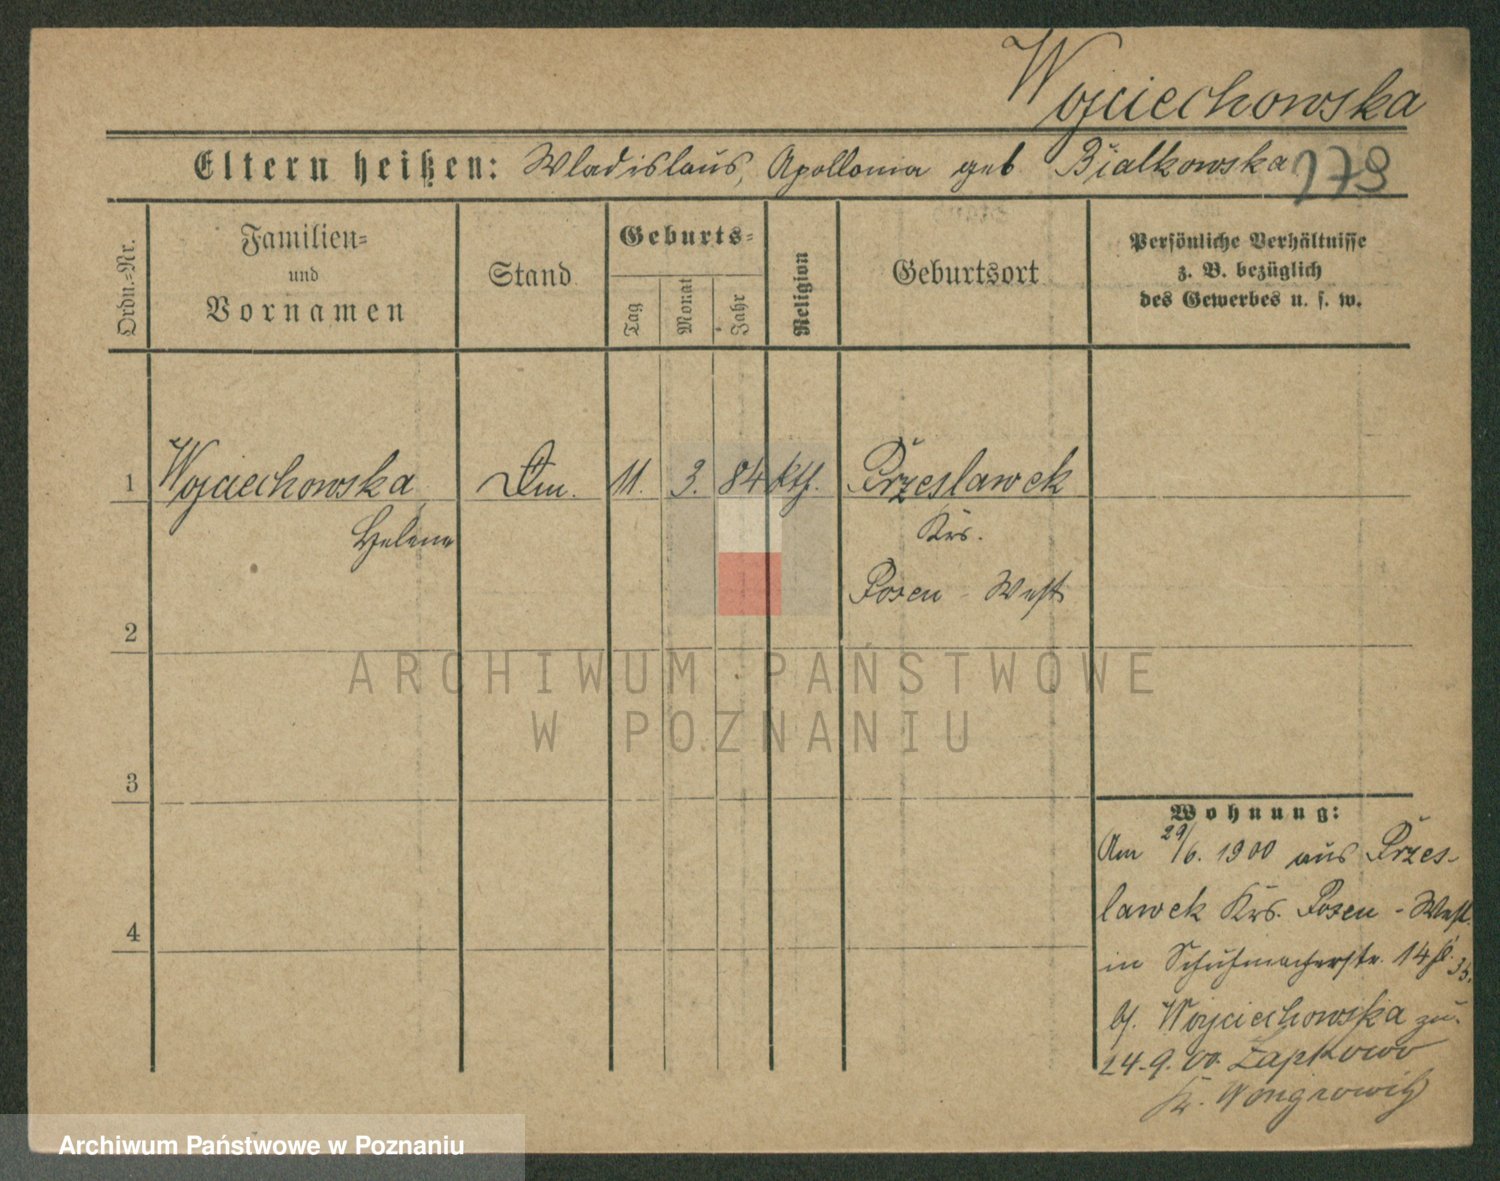 Wojciechowska
Eltern heißen: Wladislaus, Apollonia geb Bialkowska
179
Ordn.-Nr.
Familien- und Vornamen
Stand
Geburts-
Tag
Monat
Jahr
Religion
Geburtsort
Persönliche Verhältnisse
z. B. bezüglich
des Gewerbes u. s. w.
1 Wojciechowska Dm. 11. 3. 84 kth. Przeslawek
Helene Krs.
Posen - West
2
3
4
Wohnung:
Am 29/6. 1900 aus Przes-
lawek Krs. Posen - West
in Schuhmacherstr. 14
b/. Wojciechowska zu.
24.9.00.
Kr. Wongrowitz
ARCHIWUM PAŃSTWOWE
W POZNANIU
Archiwum Państwowe w Poznaniu